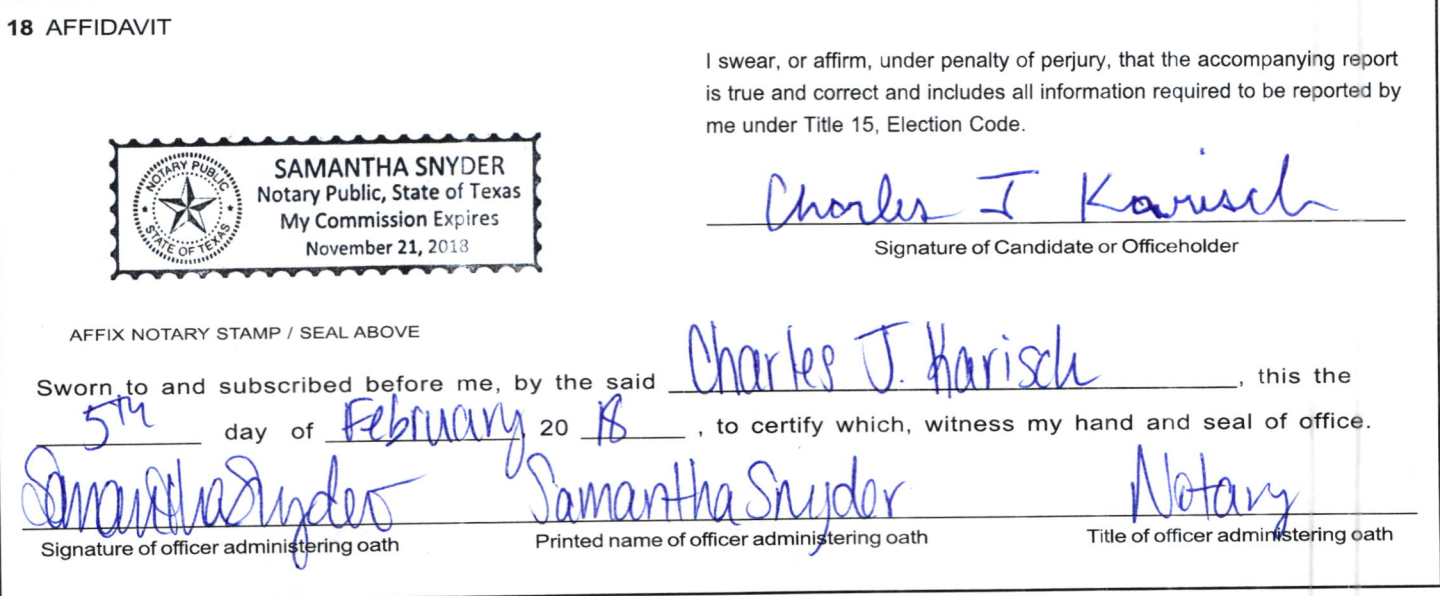 18 AFFIDAVIT
I swear, or affirm, under penalty of perjury, that the accompanying report
is true and correct and includes all information required to be reported by
me under Title 15, Election Code.
NOTARY PUBLIC
STATE OF TEXAS
SAMANTHA SNYDER
Notary Public, State of Texas
My Commission Expires
November 21, 2018
Charles J Karisch
Signature of Candidate or Officeholder
AFFIX NOTARY STAMP / SEAL ABOVE
Sworn to and subscribed before me, by the said Charles J. Karisch, this the
5TH day of February 20 18, to certify which, witness my hand and seal of office.
Samantha Snyder Samantha Snyder Notary
Signature of officer administering oath Printed name of officer administering oath Title of officer administering oath